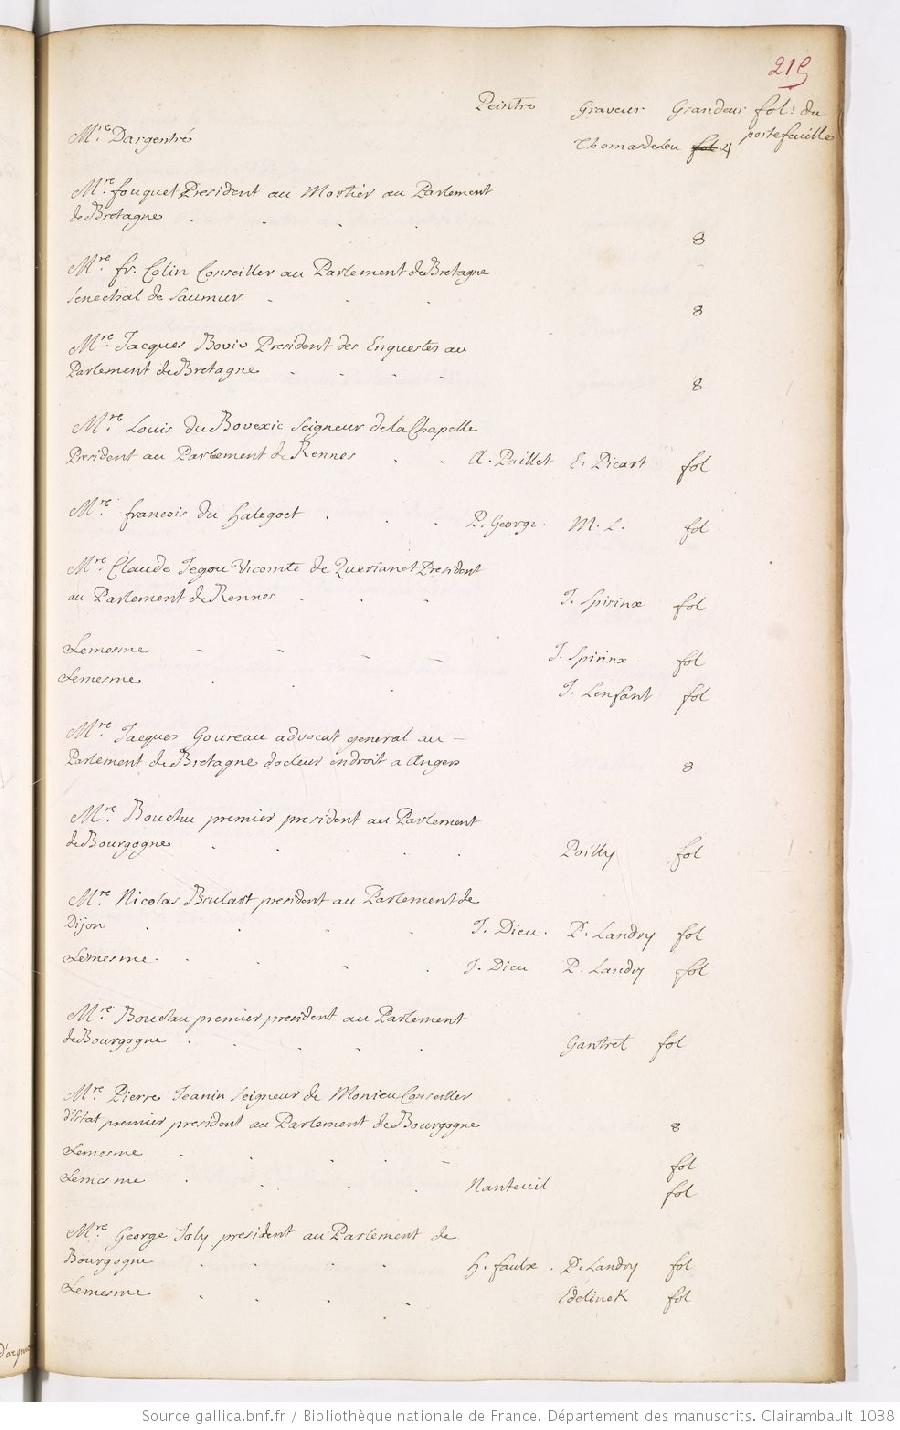 Peintre Graveur Grandeur fol: du
portefeuille
Mre Dargentré Thomasdeleu fol 4
Mre fouquet President au Mortier au Parlement
de Bretagne . . . . 8
Mre fr. Colin Conseiller au Parlement de Bretagne
senechal de Saumur . . . 8
Mre Jacques Bovio President des Enquestes au
Parlement de Bretagne . . . . 8
Mre Louis du Bovexic Seigneur de la Chapelle
President au Parlement de Rennes . . A. Paillet E. Picart fol
Mre francois du halegoet . . . P. George. M. L. fol
Mre Claude Jegou Vicomte de Querianet President
au Parlement de Rennes . . . J. Spirinx fol
Lemesme - - - - J. Spirinx fol
Lemesme . . . J. Lenfant fol
Mre Jacques Goureau advocat general au -
Parlement de Bretagne docteur endroit a Angers 8
Mre Bouchu premier president au Parlement
de Bourgogne . . . . Poilly fol
Mre Nicolas Brulart president au Parlement de
Dijon . . . . J. Dieu. P. Landry fol
Lemesme . . . . . J. Dieu P. Landry fol
Mre Bouchu premier president au Parlement
de Bourgogne . . . . Gantret fol
Mre Pierre Jeanin seigneur de Monieu Conseiller
d'Etat premier president au Parlement de Bourgogne 8
Lemesme . . . . - fol
Lemesme . . . . Nanteuil fol
Mre George Joly president au Parlement de
Bourgogne . . . H. faulx . P. Landry fol
Lemesme . . . . Edelinck fol
Source gallica.bnf.fr / Bibliothèque nationale de France. Département des manuscrits. Clairambault 1038